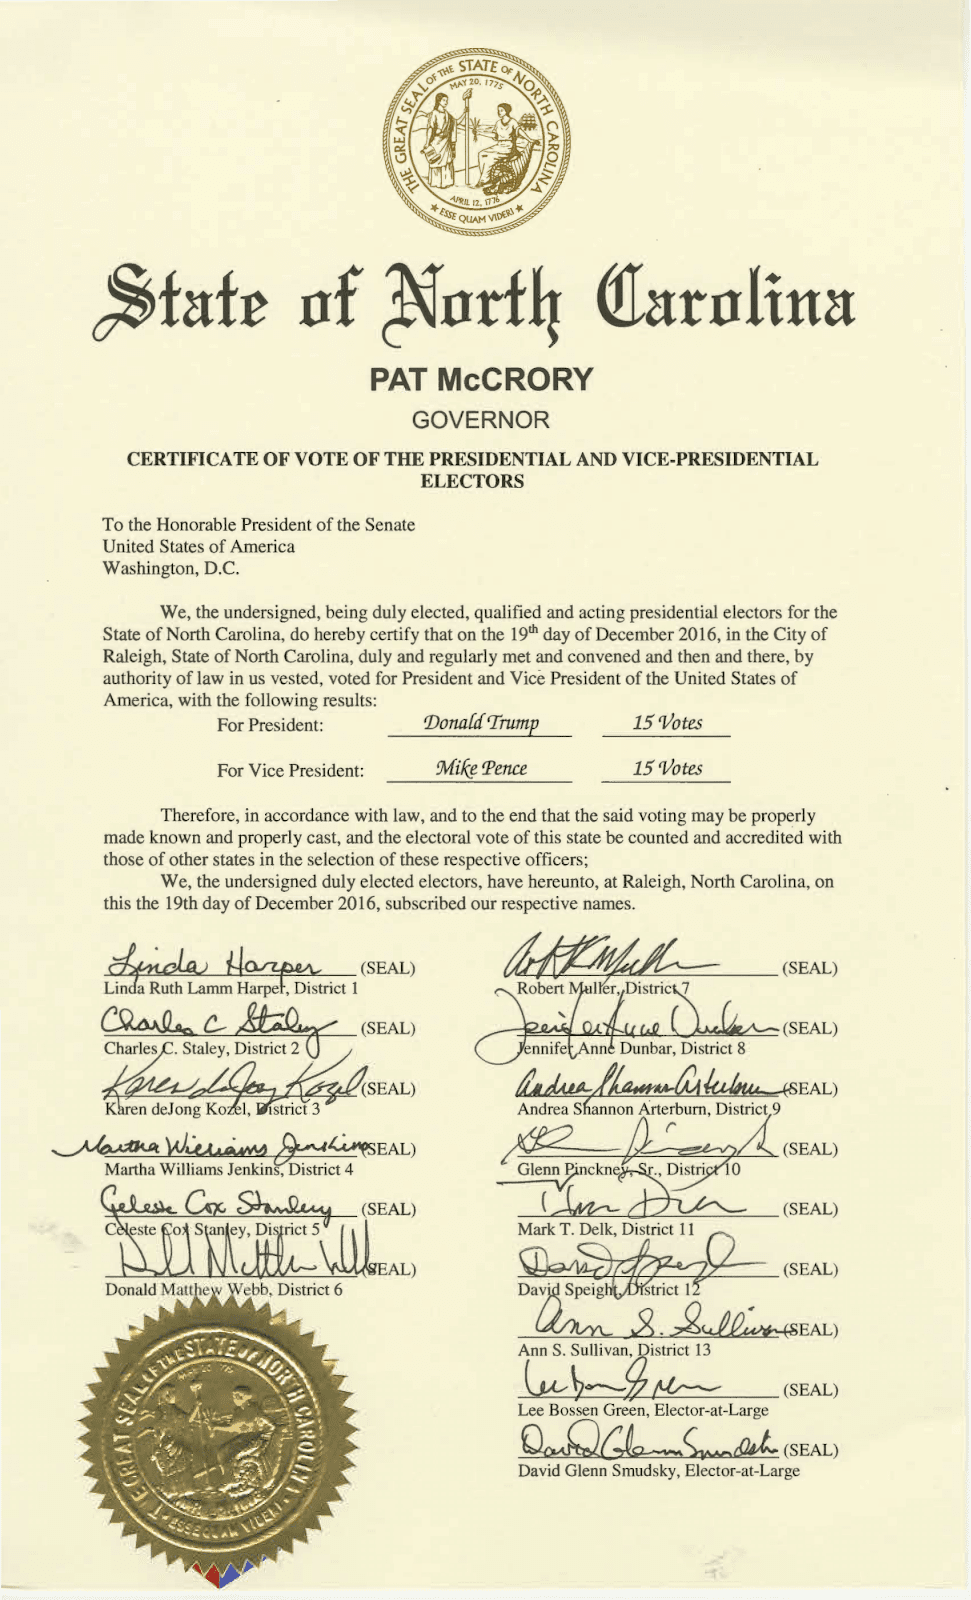 THE GREAT SEAL OF THE STATE OF NORTH CAROLINA
MAY 20, 1775
APRIL 12, 1776
★ ESSE QUAM VIDERI ★
State of North Carolina
PAT McCRORY
GOVERNOR
CERTIFICATE OF VOTE OF THE PRESIDENTIAL AND VICE-PRESIDENTIAL
ELECTORS
To the Honorable President of the Senate
United States of America
Washington, D.C.
We, the undersigned, being duly elected, qualified and acting presidential electors for the
State of North Carolina, do hereby certify that on the 19th day of December 2016, in the City of
Raleigh, State of North Carolina, duly and regularly met and convened and then and there, by
authority of law in us vested, voted for President and Vice President of the United States of
America, with the following results:
For President: Donald Trump 15 Votes
For Vice President: Mike Pence 15 Votes
Therefore, in accordance with law, and to the end that the said voting may be properly
made known and properly cast, and the electoral vote of this state be counted and accredited with
those of other states in the selection of these respective officers;
We, the undersigned duly elected electors, have hereunto, at Raleigh, North Carolina, on
this the 19th day of December 2016, subscribed our respective names.
Linda Harper (SEAL)
Linda Ruth Lamm Harper, District 1
Charles C Staley (SEAL)
Charles C. Staley, District 2
Karen deJong Kozel (SEAL)
Karen deJong Kozel, District 3
Martha Williams Jenkins (SEAL)
Martha Williams Jenkins, District 4
Celeste Cox Stanley (SEAL)
Celeste Cox Stanley, District 5
(SEAL)
Donald Matthew Webb, District 6
(SEAL)
Robert Muller, District 7
Jennifer Anne Dunbar (SEAL)
Jennifer Anne Dunbar, District 8
Andrea Shannon Arterburn (SEAL)
Andrea Shannon Arterburn, District 9
(SEAL)
Glenn Pinckney, Sr., District 10
(SEAL)
Mark T. Delk, District 11
David Speight (SEAL)
David Speight, District 12
Ann S. Sullivan (SEAL)
Ann S. Sullivan, District 13
Lee Bossen Green (SEAL)
Lee Bossen Green, Elector-at-Large
David Glenn Smudsky (SEAL)
David Glenn Smudsky, Elector-at-Large
THE GREAT SEAL OF THE STATE OF NORTH CAROLINA
ESSE QUAM VIDERI